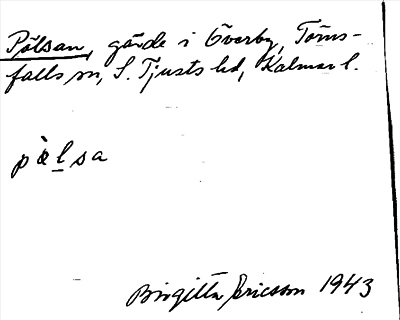 Pölsan, gärde i Överby, Törns-
falls sn, S. Tjusts hd, Kalmar l.
pö̀l̲sa
Birgitta Ericsson 1943